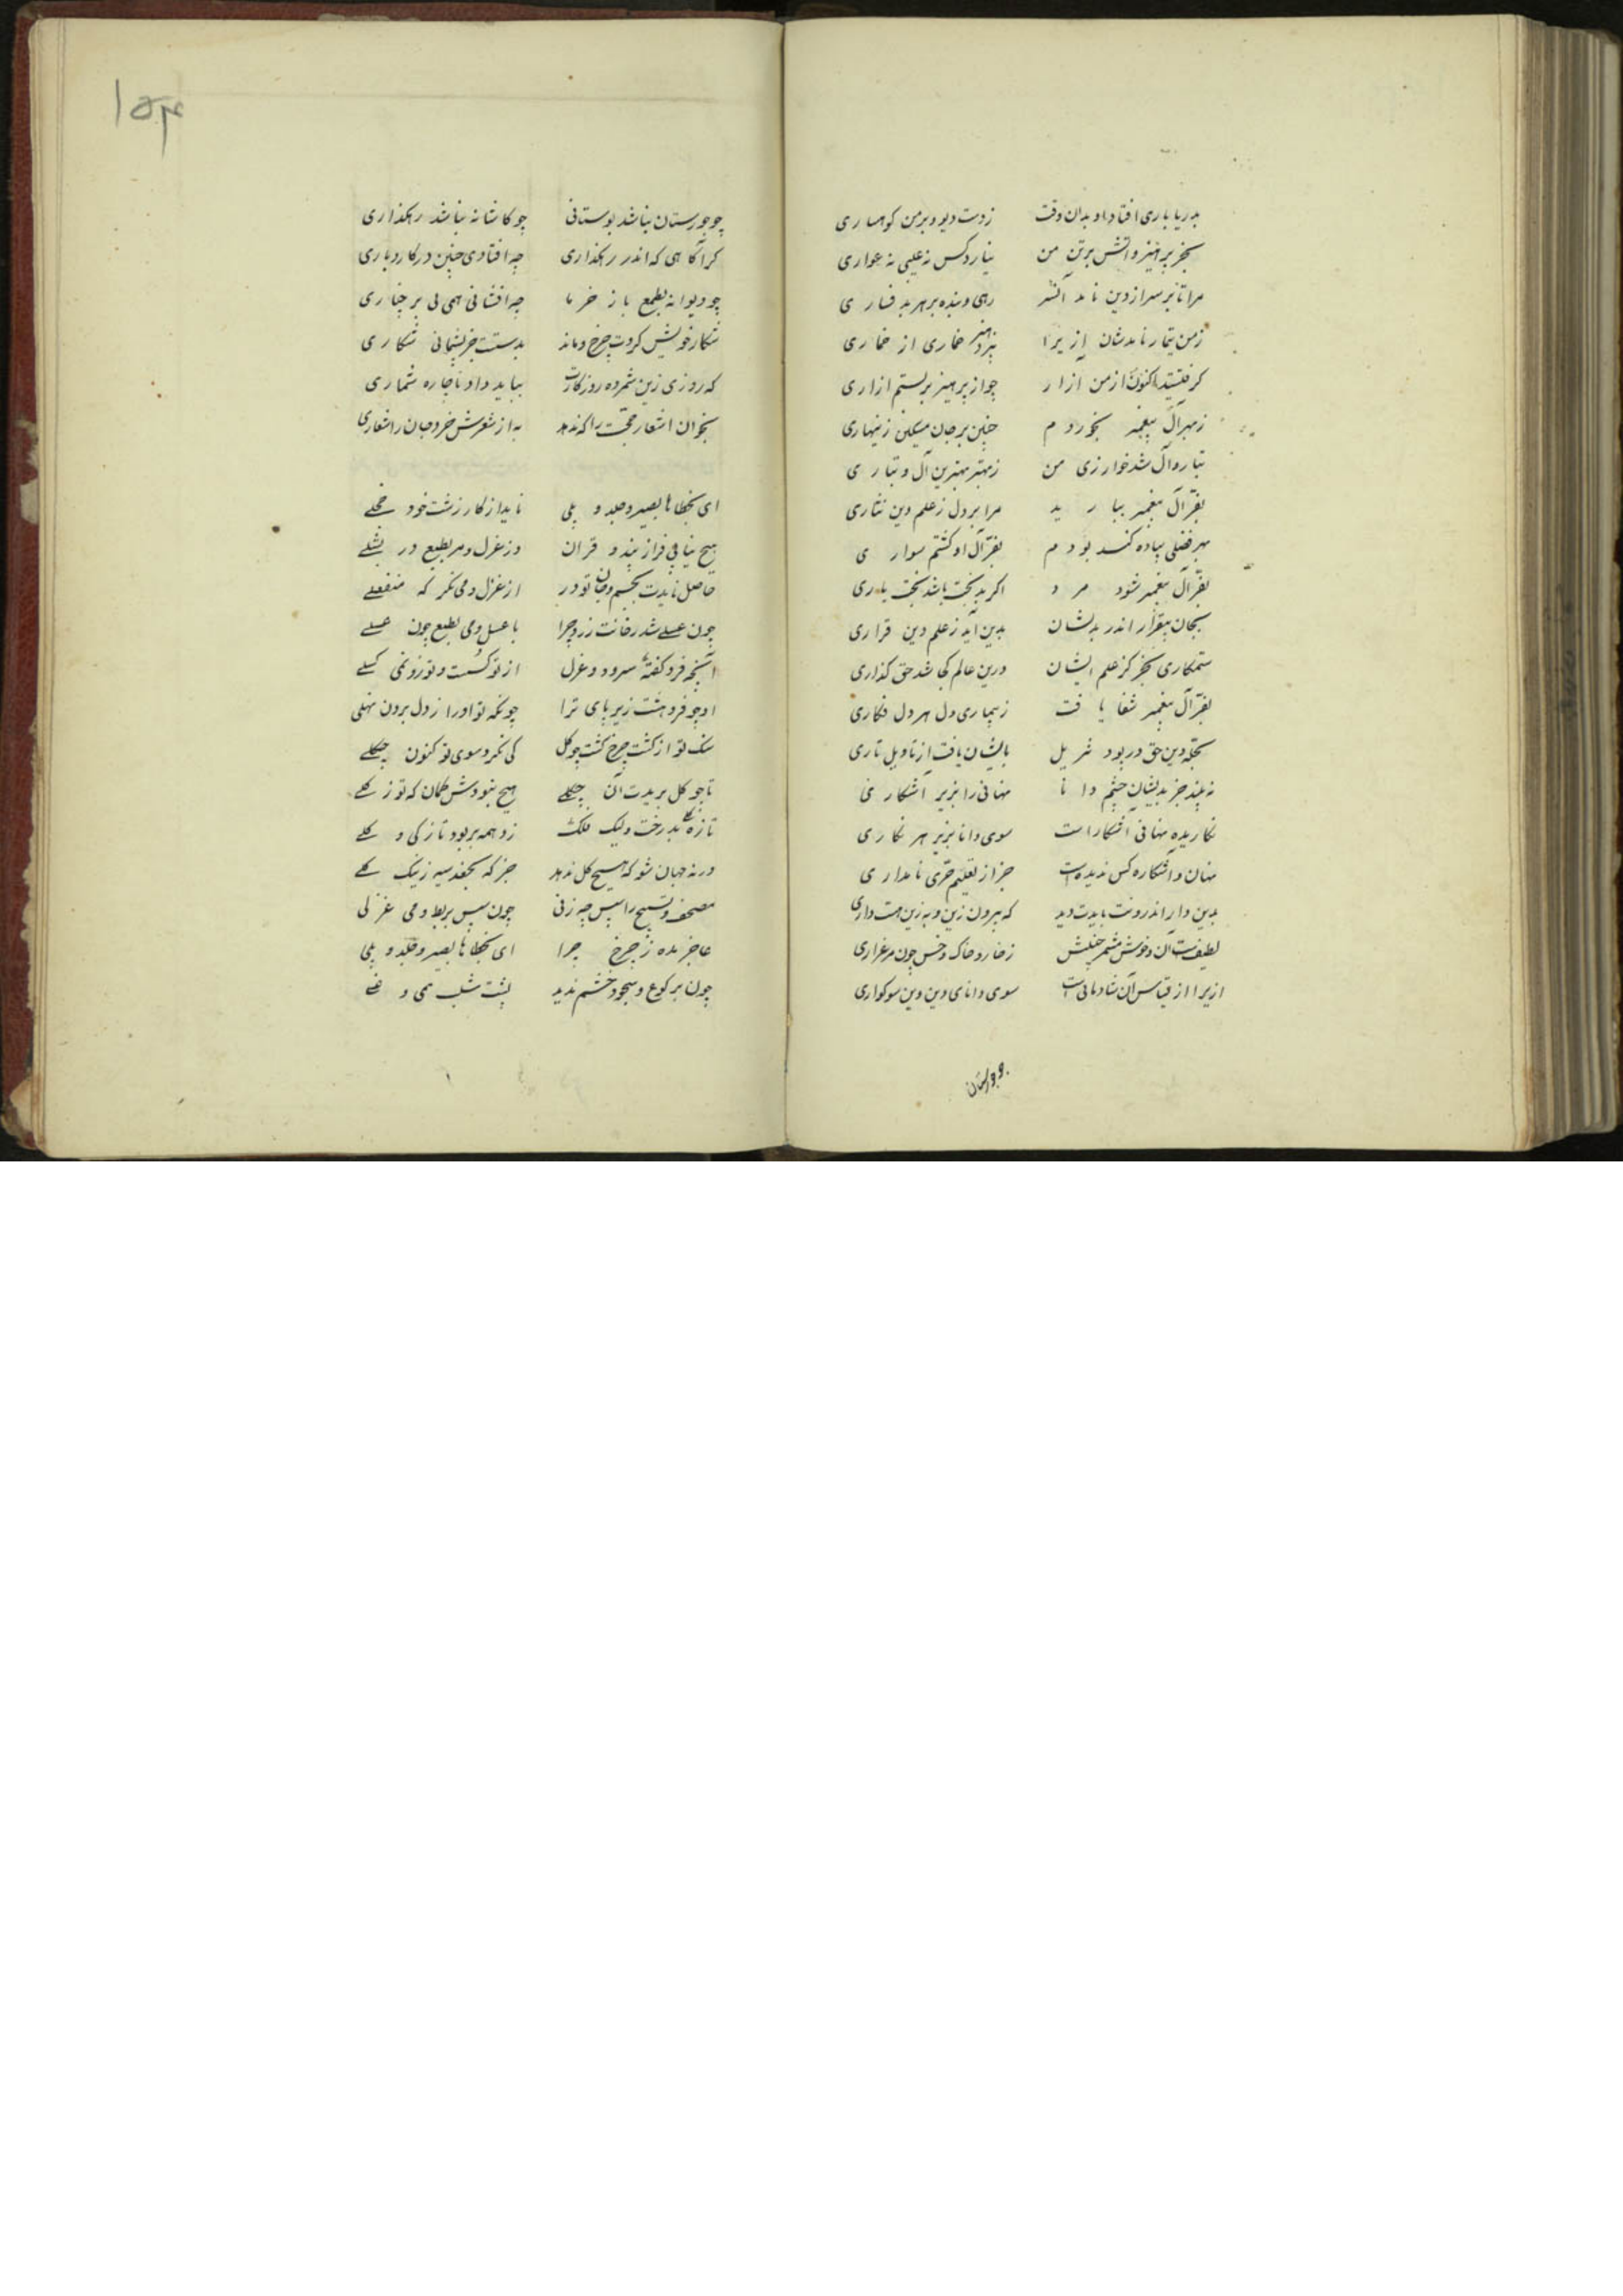 بدریا باری افتاد او بدان وقت زدست دیو و بر من کوهساری
بجز پرهیز و دانش بر تن من نیارد کس نه عیبی نه عواری
مرا تا بر سر از دین نامد افسر رهی و بنده بر هر بد فساری
زمن تیمار نامدشان ازیرا نپرهیزد خماری از خماری
کرفتستند اکنون از من ازار چو از پرهیز بر بستم ازاری
زمهر آل پیغمبر بخوردم چنین بر جان مسکین زینهاری
تبار و آل شد خوار زی من زبهر بهترین آل و تباری
بفر آل پیغمبر ببارید مرا بر دل زعلم دین نثاری
بهر فضلی پیاده کند بودم بفر آل او کشتم سواری
بفر آل پیغمبر شود مرد اکر بدبخت باشد بختیاری
بجان بیقرار اندر بدیشان پدید آید زعلم دین قراری
ستمکاری بجز کز علم ایشان درین عالم کجا شد حق کذاری
بفر آل پیغمبر شفا یافت زبیماری دل هر دل فکاری
بجمله دین حق در بود تنزیل بایشان یافت از تاویل تاری
نه بیند جز بدیشان چشم دانا نهانی را بزیر آشکاری
نکاریده نهانی آشکاراست سوی دانا بزیر هر نکاری
نهان و آشکاره کس ندیده است جز از تعلیم حری نامداری
بدین دار اندرونت بایدت دید که بیرون زین و به زین هست داری
لطیفست آن و خوش مشمر چنینش زخار و خاک و خس چون مرغزاری
ازیرا از قیاس آن شادمانی است سوی دانای دین وین سوکواری
چو جورستان
۱۵۴
چو جورستان نباشد بوستانی چو کاشانه نباشد رهکذاری
کرا کاهی که اندر رهکذاری چه افتادی چنین در کار و باری
چو دیوانه بطمع باز خرما چه افشانی همی بی بر چناری
شکار خویش کردت چرخ و نامد بدستت جز پشیمانی شکاری
که روزی زین شمرده روزکارت بباید داد ناچاره شماری
بخوان اشعار حجت را که ندهد به از شعرش خرد جان را شعاری
ای بخطاها بصیر و جلد و ملی نایدت از کار زشت خود خجلی
هیچ نیابی فراز پند و قران وز غزل و می بطبع در بشلی
حاصل نایدت بجسم و جان تو در از غزل و می نکر که منفعلی
چون عسلی شد رخانت زرد چرا با عسل و می بطبع چون عسلی
انچه فرو کفته سرود و غزل از تو کسست و تو زو نمی کسلی
او چو فرو هشت زیر پای ترا چونکه تو اورا ز دل برون نهلی
سنک تو از کشت چرخ کشت چو کل کی نکرد سوی تو کنون چکلی
تا چو کل بر بدت آن چکلی هیچ نبودش کمان که تو ز کلی
تازه کلی بد درخت ولیک فلک زو همه بربود تازکی و کلی
درنه جهان شو که هیچ کل ندهد جز که بجفد سیه زنیک کلی
مصحف و تسبیح را سپس چه زنی چون سپس بربط و می غزلی
عاجز مده ز چرخ چرا ای بخطاها بصیر و جلد و ملی
چون برکوع و سجود خشم ندید پشت شلب همی و